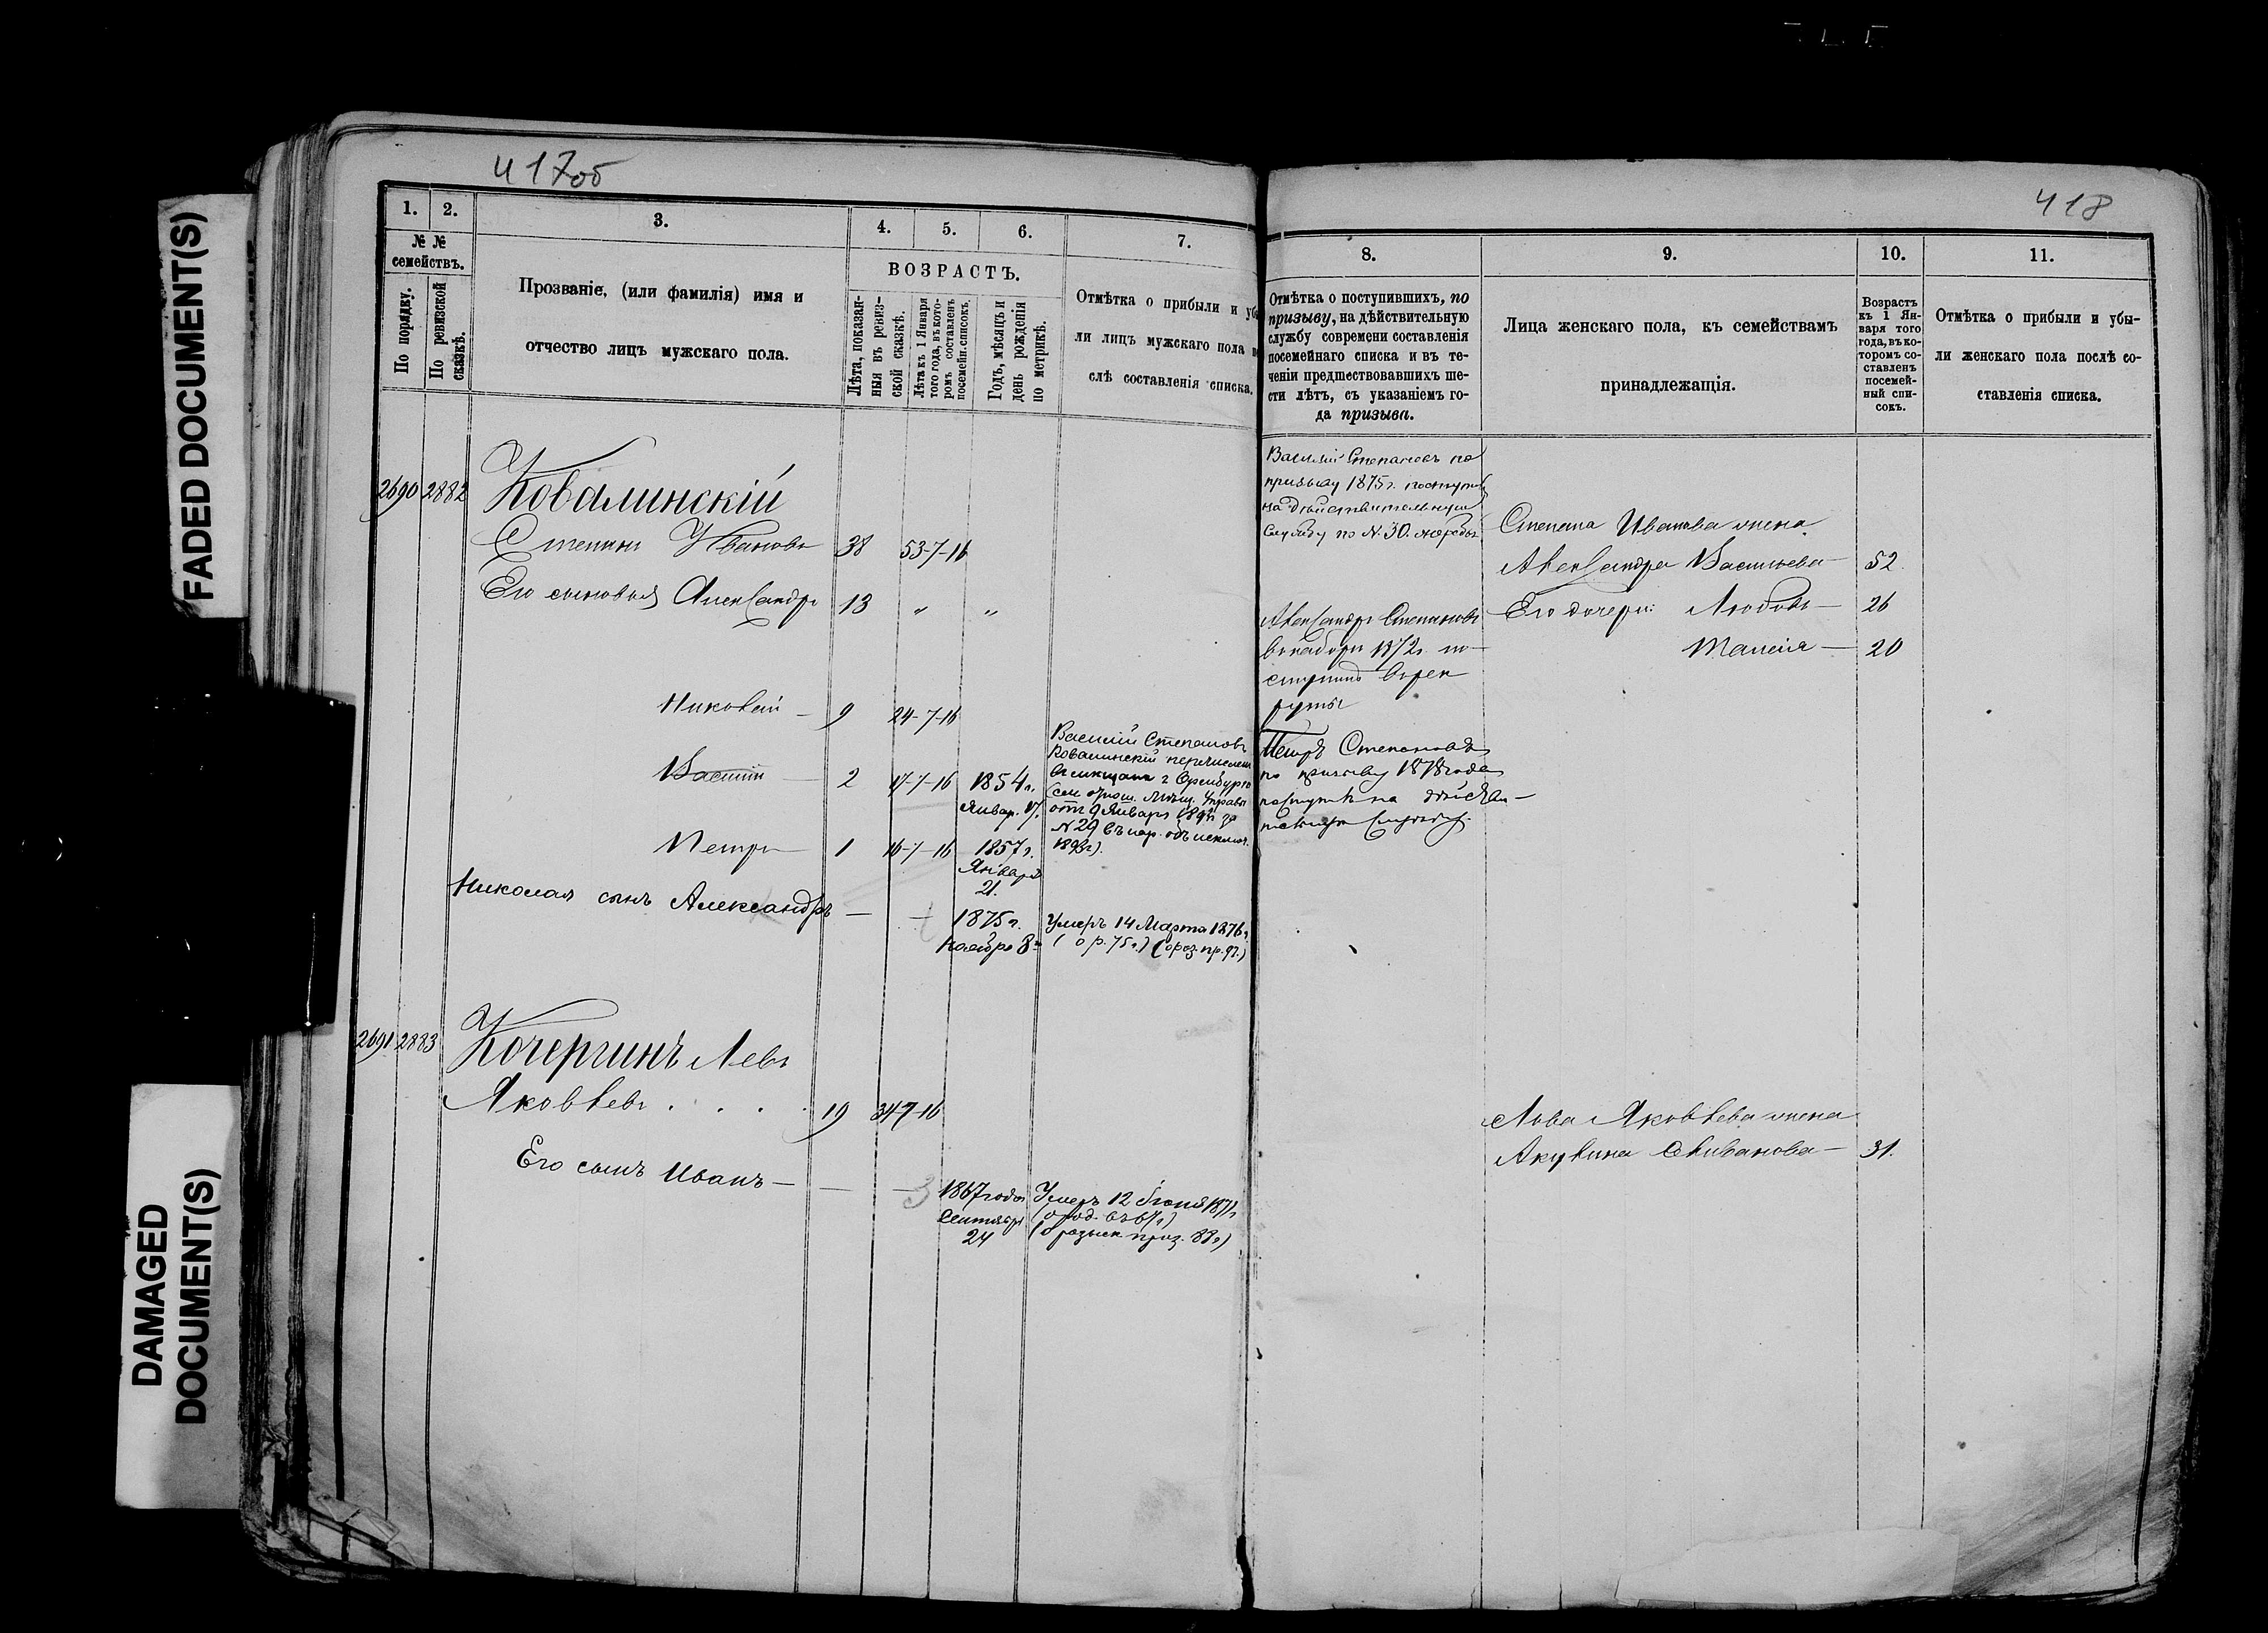 FADED DOCUMENT(S)
DAMAGED
DOCUMENT(S)
417об
1. 2. 3. 4. 5. 6. 7.
№ №
семействъ.
По порядку.
По ревизской
сказкѣ.
Прозваніе, (или фамилія) имя и
отчество лицъ мужскаго пола.
ВОЗРАСТЪ.
Лѣта, показан-
ныя въ ревиз-
ской сказкѣ.
Лѣта къ 1 Января
того года, въ кото-
ромъ составленъ
посемейн. списокъ.
Годъ, мѣсяцъ и
день рожденія
по метрикѣ.
Отмѣтка о прибыли и уб
ли лицъ мужскаго пола
слѣ составленія списка.
2690 2882 Ковалинскій
Степанъ Ивановъ 38 53-7-16
Его сыновья Александръ 13 „ „
Николай — 9 24-7-16
Василій — 2 17-7-16 1854г.
Январ. 17.
Василій Степановъ
Ковалинскій перечисленъ
въ мищане г Оренбурга
(см отнош. Мѣщ. Управы
от 9 Января
№ 29 въ нар. объ исключ.
Петръ — 1 16-7-16 1857г.
Января
21.
Николая сынъ Александръ — — 1875г.
Ноября 8
Умеръ 14 Марта 1876г.
(о р. 75г.)
2691 2883 Кочергинъ Левъ
Яковлевъ . . . . 19 34-7-16
Его сынъ Иванъ — — — 1867 года
Сентября
24
Умеръ 12 Іюня 1871г
(о род. въ 67г)
418
8. 9. 10. 11.
Отмѣтка о поступившихъ, по
призыву, на дѣйствительную
службу современи составленія
посемейнаго списка и въ те-
ченіи предшествовавшихъ ше-
сти лѣтъ, съ указаніемъ го-
да призыва.
Лица женскаго пола, къ семействамъ
принадлежащія.
Возрастъ
къ 1 Ян-
варя того
года, въ ко-
торомъ со-
ставленъ
посемей-
ный спи-
сокъ.
Отмѣтка о прибыли и убы-
ли женскаго пола послѣ со-
ставленія списка.
Василій Степановъ по
призыву 1875г. поступил
на дѣйствительную
службу по №. 30. жеребью
Александръ Степановъ
въ наборъ 1872г. по-
ступилъ въ рек
руты
Петръ Степановъ
по призыву 1878 года
поступилъ на дѣйстви-
тельную службу.
Степана Иванова жена
Александра Васильева — 52.
Его дочери: Любовь — 26
Таисія — 20
Льва Яковлева жена
Акулина Селиванова — 31.